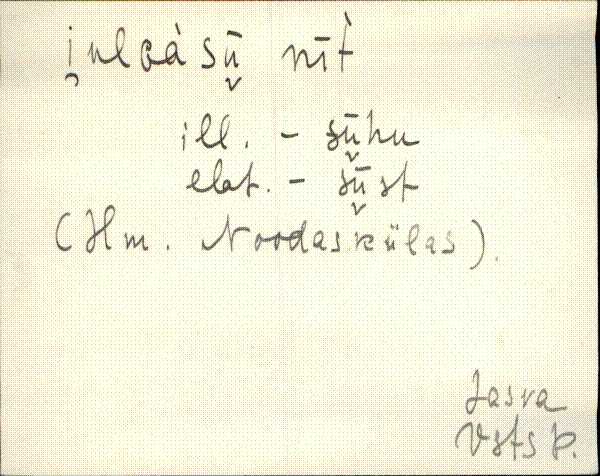 i̮nlcàsū̬ nīt̀
ill. – sū̬hu
elat. – sū̬st
(Hm. Noodaskülas).
Jasva
Vsts k.